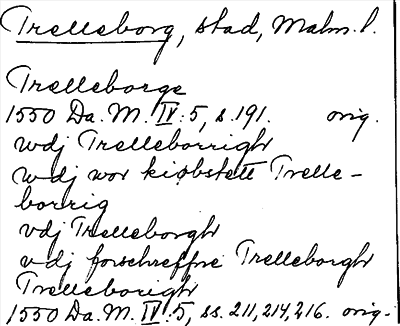 Trelleborg, stad, Malm. l.
Trelleborge
1550 Da. M. IV:5, s. 191. orig.
wdj Trelleborrigh
wdj wor kiøbstett Trelle-
borrig
vdj Trelleborgh
vdj forschreffne Trelleborgh
Trelleborigh
1550 Da. M. IV:5, ss. 211, 214, 216. orig.